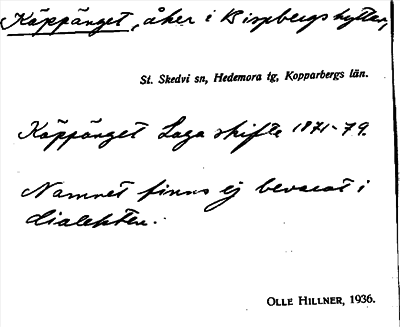 Käppänget, åker i Bispbergshyttan,
St. Skedvi sn, Hedemora tg, Kopparbergs län.
Käppänget Laga skifte 1871-79.
Namnet finns ej bevarat i
dialekten.
OLLE HILLNER, 1936.